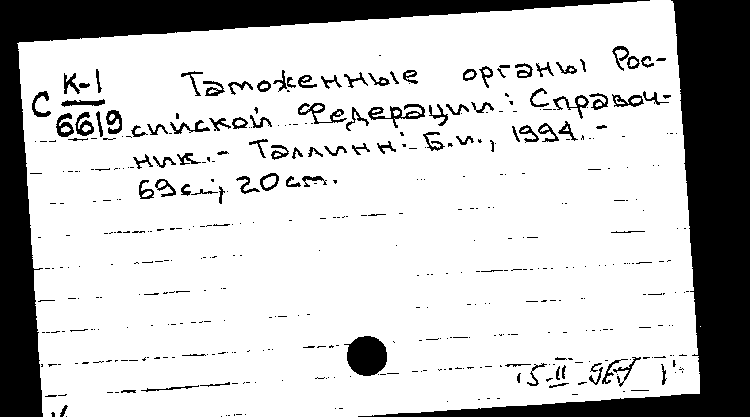 К-1 Таможенные органы Рос-
С 6619 сийской Федерации: Справоч-
ник.- Таллинн: Б.и., 1994.-
69с.; 20 cm.
15-II